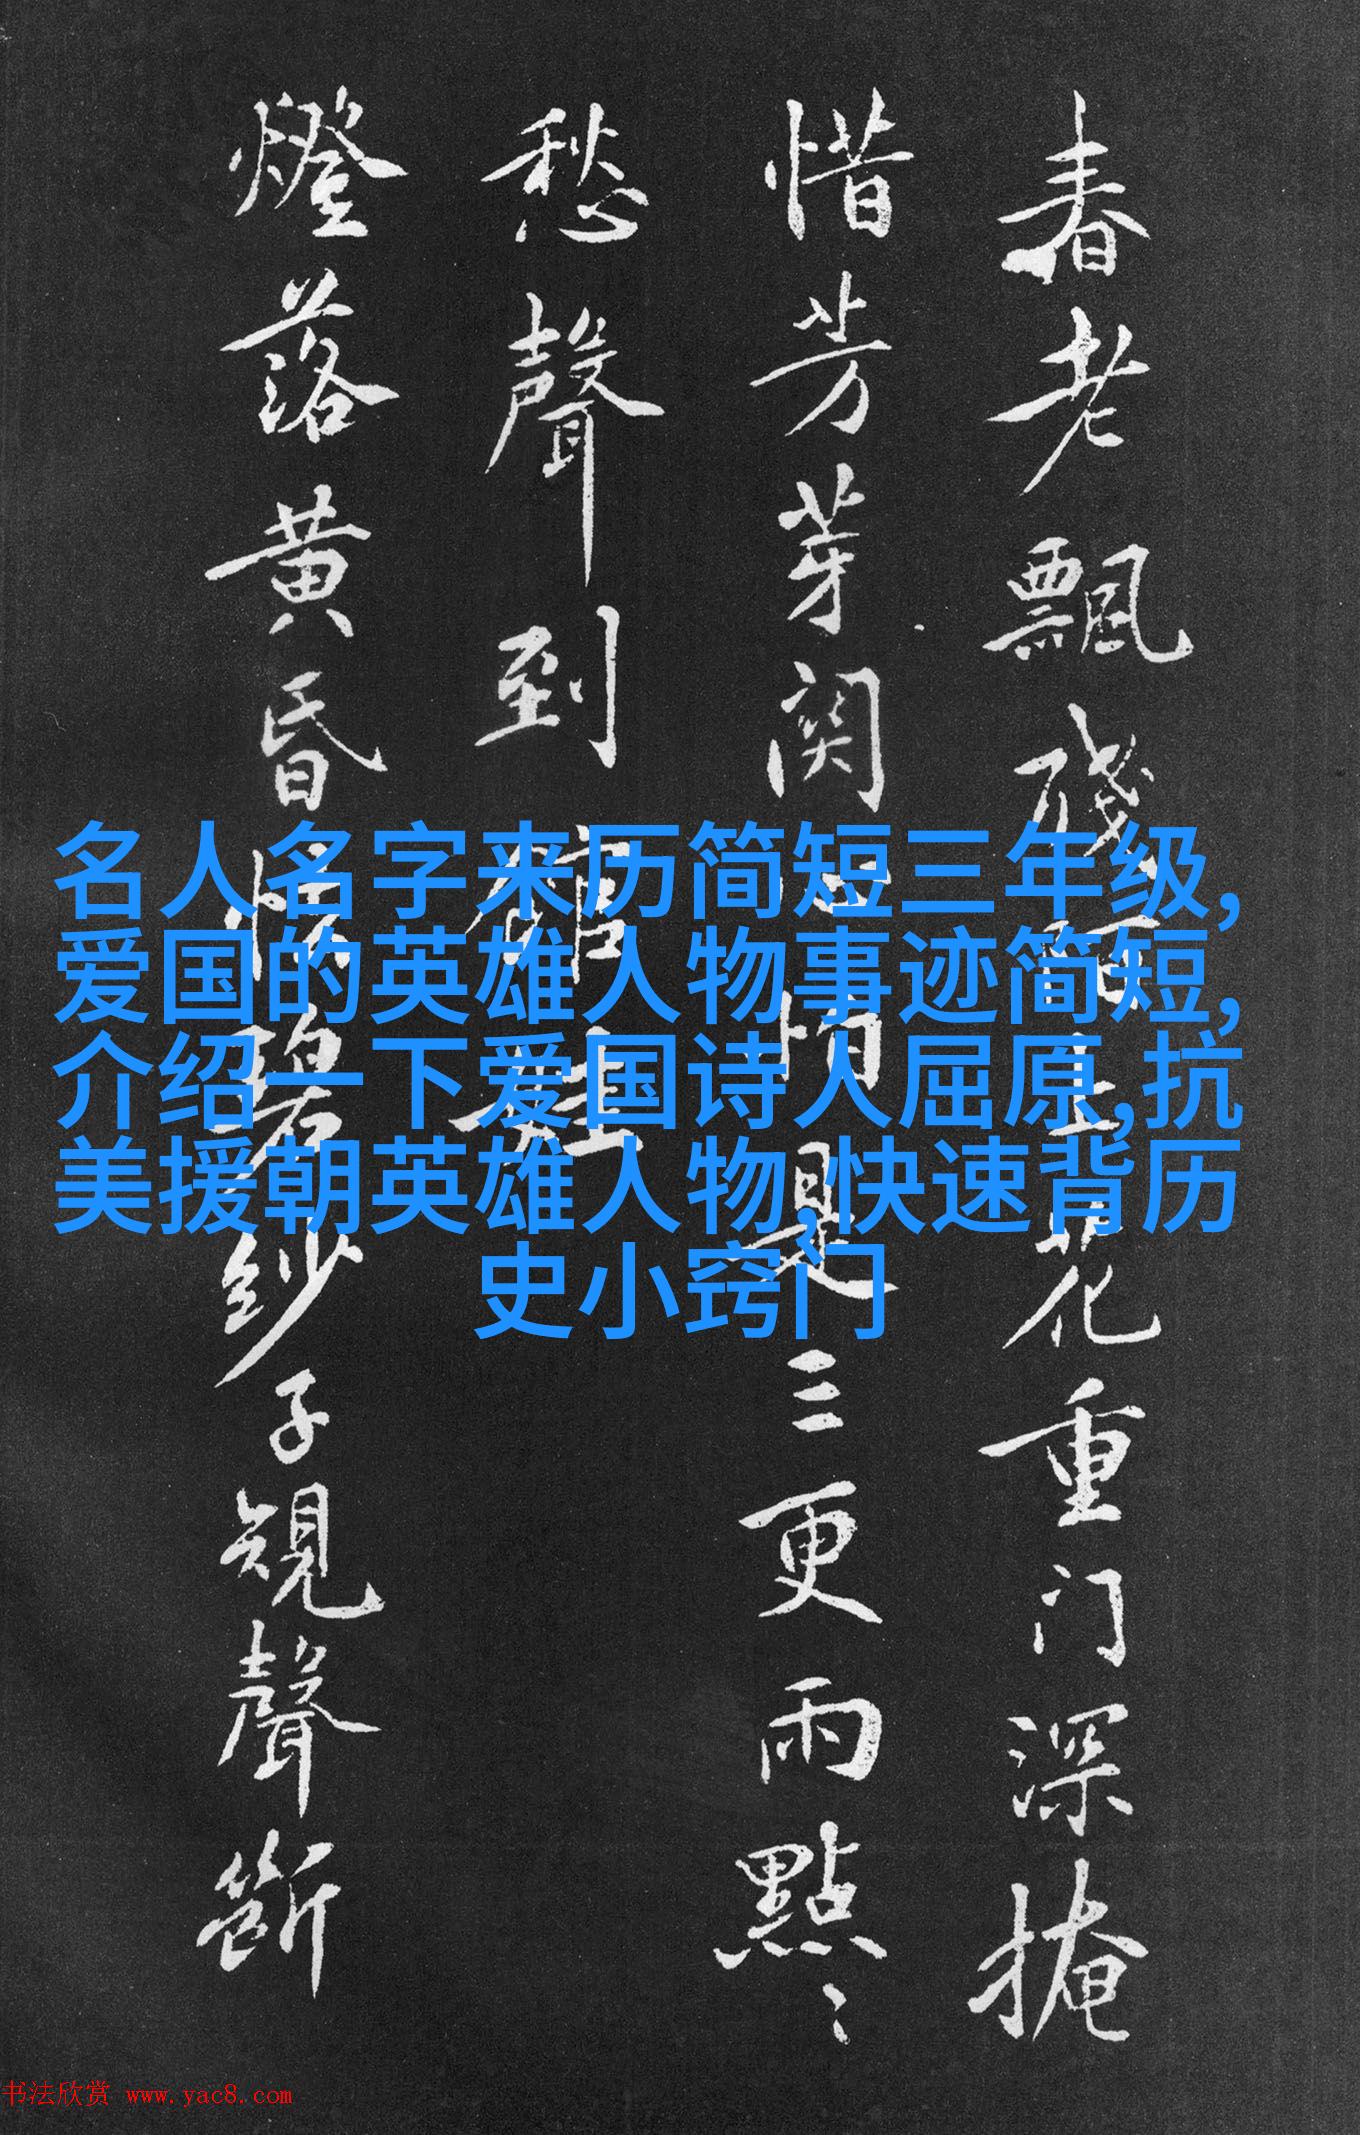 春老飘残
上花重门深掩
惜芳芽関
惰是三更雨點〻
愁聲到館娃
燈落黄昏
碧紗子規聲斷
名人名字来历简短三年级,
爱国的英雄人物事迹简短,
介绍一下爱国诗人屈原,抗
美援朝英雄人物,快速背历
史小窍门
书法欣赏 www.yac8.com